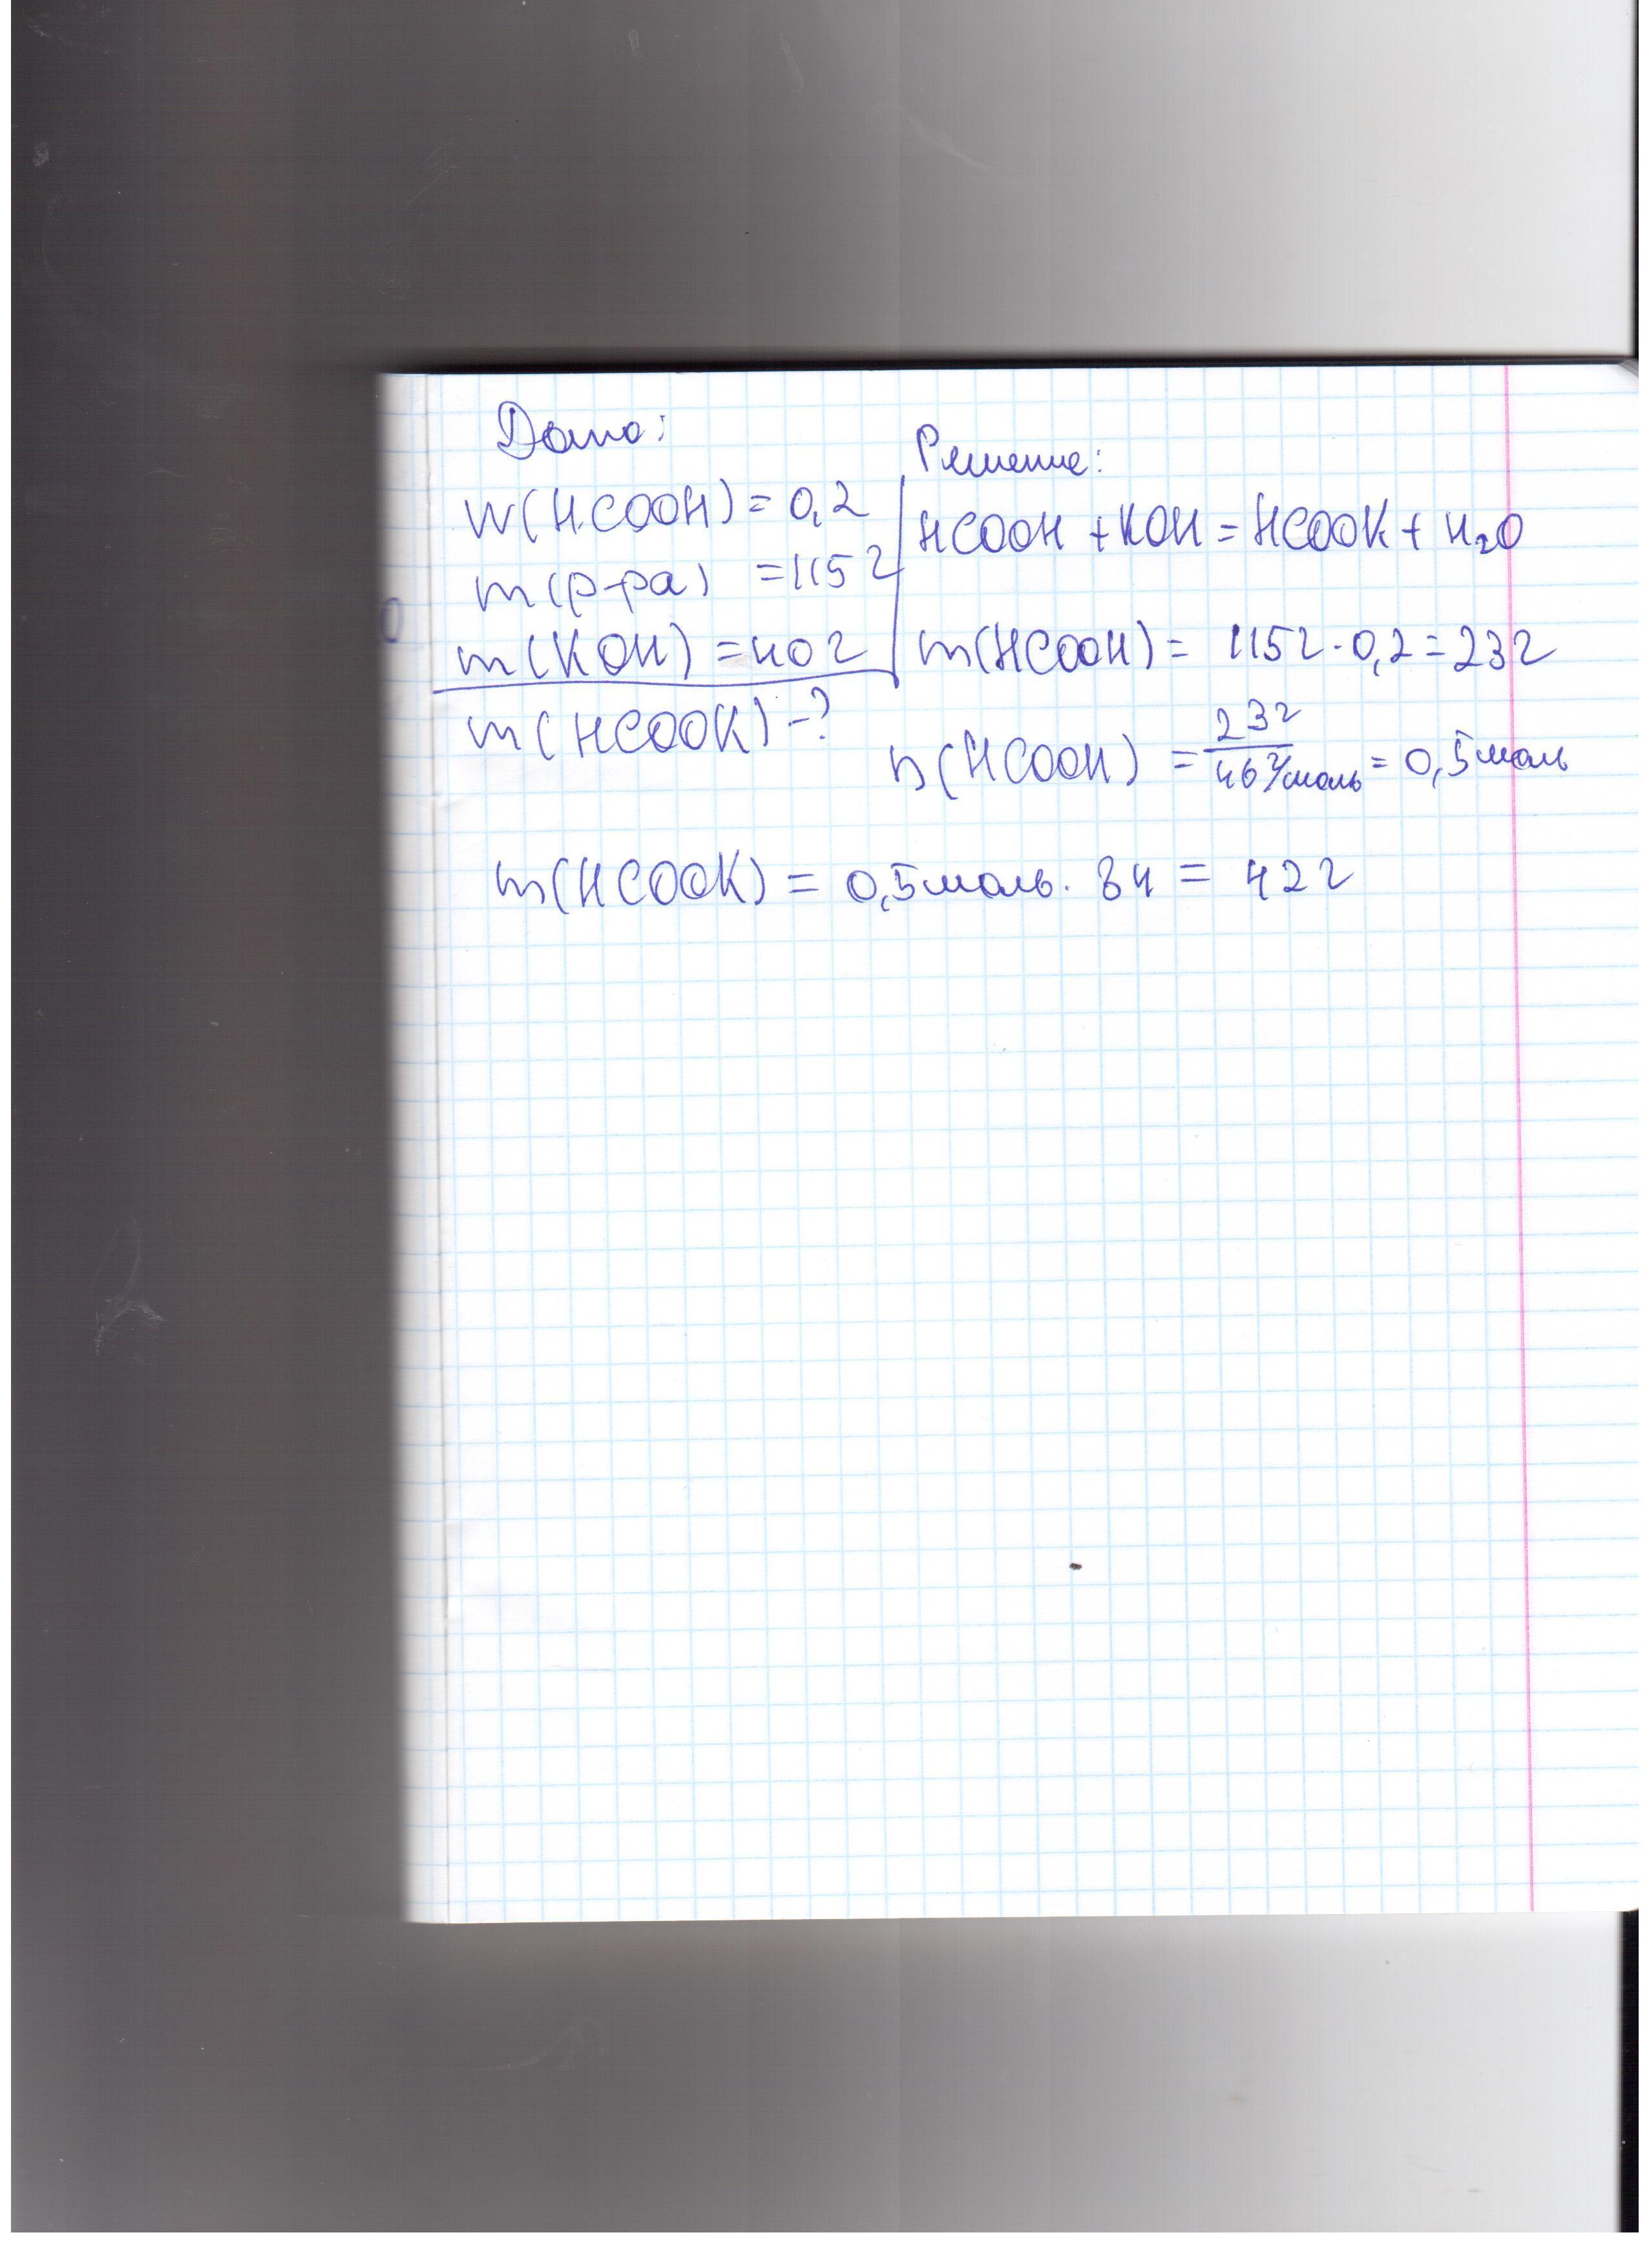 Дано:
W(HCOOH) = 0,2
m(р-ра) = 115 г
m(KOH) = 40 г
m(HCOOK) - ?
Решение:
HCOOH + KOH = HCOOK + H₂O
m(HCOOH) = 115 г · 0,2 = 23 г
n(HCOOH) = 23 г / 46 г/моль = 0,5 моль
m(HCOOK) = 0,5 моль · 84 = 42 г